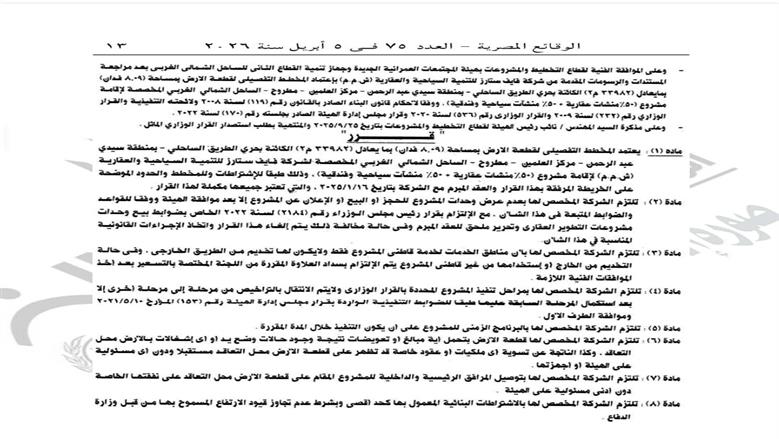 الوقائع المصرية – العدد ٧٥ فى ٥ أبريل سنة ٢٠٢٦ ١٣
- وعلى الموافقة الفنية لقطاع التخطيط والمشروعات بهيئة المجتمعات العمرانية الجديدة وجهاز تنمية القطاع الثانى للساحل الشمالى الغربى بعد مراجعة
المستندات والرسومات المقدمة من شركة فايف ستارز للتنمية السياحية والعقارية (ش.م.م) بإعتماد المخطط التفصيلى لقطعة الارض بمساحة (٨.٠٩ فدان)
بمايعادل (٣٣٩٨٢ م٢) الكائنة بحري الطريق الساحلي - بمنطقة سيدي عبد الرحمن - مركز العلمين - مطروح - الساحل الشمالي الغربي المخصصة لإقامة
مشروع (٥٠٪ منشآت عقارية + ٥٠٪ منشآت سياحية وفندقية) ، ووفقا لاحكام قانون البناء الصادر بالقانون رقم (١١٩) لسنة ٢٠٠٨ ولائحته التنفيذية والقرار
الوزاري رقم (٢٣٢) لسنة ٢٠٠٩ والقرار الوزاري رقم (٥٣٦) لسنة ٢٠٢٠ وقرار مجلس إدارة الهيئة الصادر بجلسته رقم (١٧٠) لسنة ٢٠٢٢ .
- وعلى مذكرة السيد المهندس / نائب رئيس الهيئة لقطاع التخطيط والمشروعات بتاريخ ٢٠٢٥/٩/٢٥ والمنتهية بطلب استصدار القرار الوزاري الماثل .
" قــــرر "
مادة (١) : يعتمد المخطط التفصيلى لقطعة الارض بمساحة (٨.٠٩ فدان) بما يعادل (٣٣٩٨٢ م٢) الكائنة بحري الطريق الساحلي - بمنطقة سيدي
عبد الرحمن - مركز العلمين - مطروح - الساحل الشمالي الغربي المخصصة لشركة فايف ستارز للتنمية السياحية والعقارية
(ش.م.م) لإقامة مشروع (٥٠٪ منشآت عقارية + ٥٠٪ منشآت سياحية وفندقية) ، وذلك طبقاً للإشتراطات وللمخطط والحدود الموضحة
على الخريطة المرفقة بهذا القرار والعقد المبرم مع الشركة بتاريخ ٢٠٢٥/١/١٦ ، والتي تعتبر جميعها مكملة لهذا القرار .
مادة (٢) : تلتزم الشركة المخصص لها بعدم عرض وحدات المشروع للحجز أو البيع أو الإعلان عن المشروع إلا بعد موافقة الهيئة ووفقا للقواعد
والضوابط المتبعة فى هذا الشأن . مع الإلتزام بقرار رئيس مجلس الوزراء رقم (٢١٨٤) لسنة ٢٠٢٢ الخاص بضوابط بيع وحدات
مشروعات التطوير العقارى وتحرير ملحق للعقد المبرم وفى حالة مخالفة ذلك يتم إلغاء هذا القرار واتخاذ الإجراءات القانونية
المناسبة فى هذا الشأن.
مادة (٣) : تلتزم الشركة المخصص لها بأن مناطق الخدمات لخدمة قاطنى المشروع فقط ولايكون لها تخديم من الطريق الخارجى . وفى حالة
التخديم من الخارج أو إستخدامها من غير قاطنى المشروع يتم الإلتزام بسداد العلاوة المقررة من اللجنة المختصة بالتسعير بعد أخذ
الموافقات الفنية اللازمة .
مادة (٤) : تلتزم الشركة المخصص لها بمراحل تنفيذ المشروع المحددة بالقرار الوزارى ولايتم الانتقال بالتراخيص من مرحلة إلى مرحلة أخرى إلا
بعد استكمال المرحلة السابقة عليها طبقا للضوابط التنفيذية الواردة بقرار مجلس إدارة الهيئة رقم (١٥٣) المؤرخ ٢٠٢١/٥/١٠
وموافقة الطرف الاول .
مادة (٥) : تلتزم الشركة المخصص لها بالبرنامج الزمنى للمشروع على أن يكون التنفيذ خلال المدة المقررة .
مادة (٦) : تلتزم الشركة المخصص لها قطعة الارض بتحمل أية مبالغ أو تعويضات نتيجة وجود حالات وضع يد أو أى إشغالات بالارض محل
التعاقد . وكذا الناتجة عن تسوية أى ملكيات أو عقود خاصة قد تظهر على قطعة الارض محل التعاقد مستقبلا ودون أى مسئولية
على الهيئة أو أجهزتها .
مادة (٧) : تلتزم الشركة المخصص لها بتوصيل المرافق الرئيسية والداخلية للمشروع المقام على قطعة الارض محل التعاقد على نفقتها الخاصة
دون أدنى مسئولية على الهيئة .
مادة (٨) : تلتزم الشركة المخصص لها بالاشتراطات البنائية المعمول بها كحد أقصى وبشرط عدم تجاوز قيود الارتفاع المسموح بها من قبل وزارة
الدفاع .